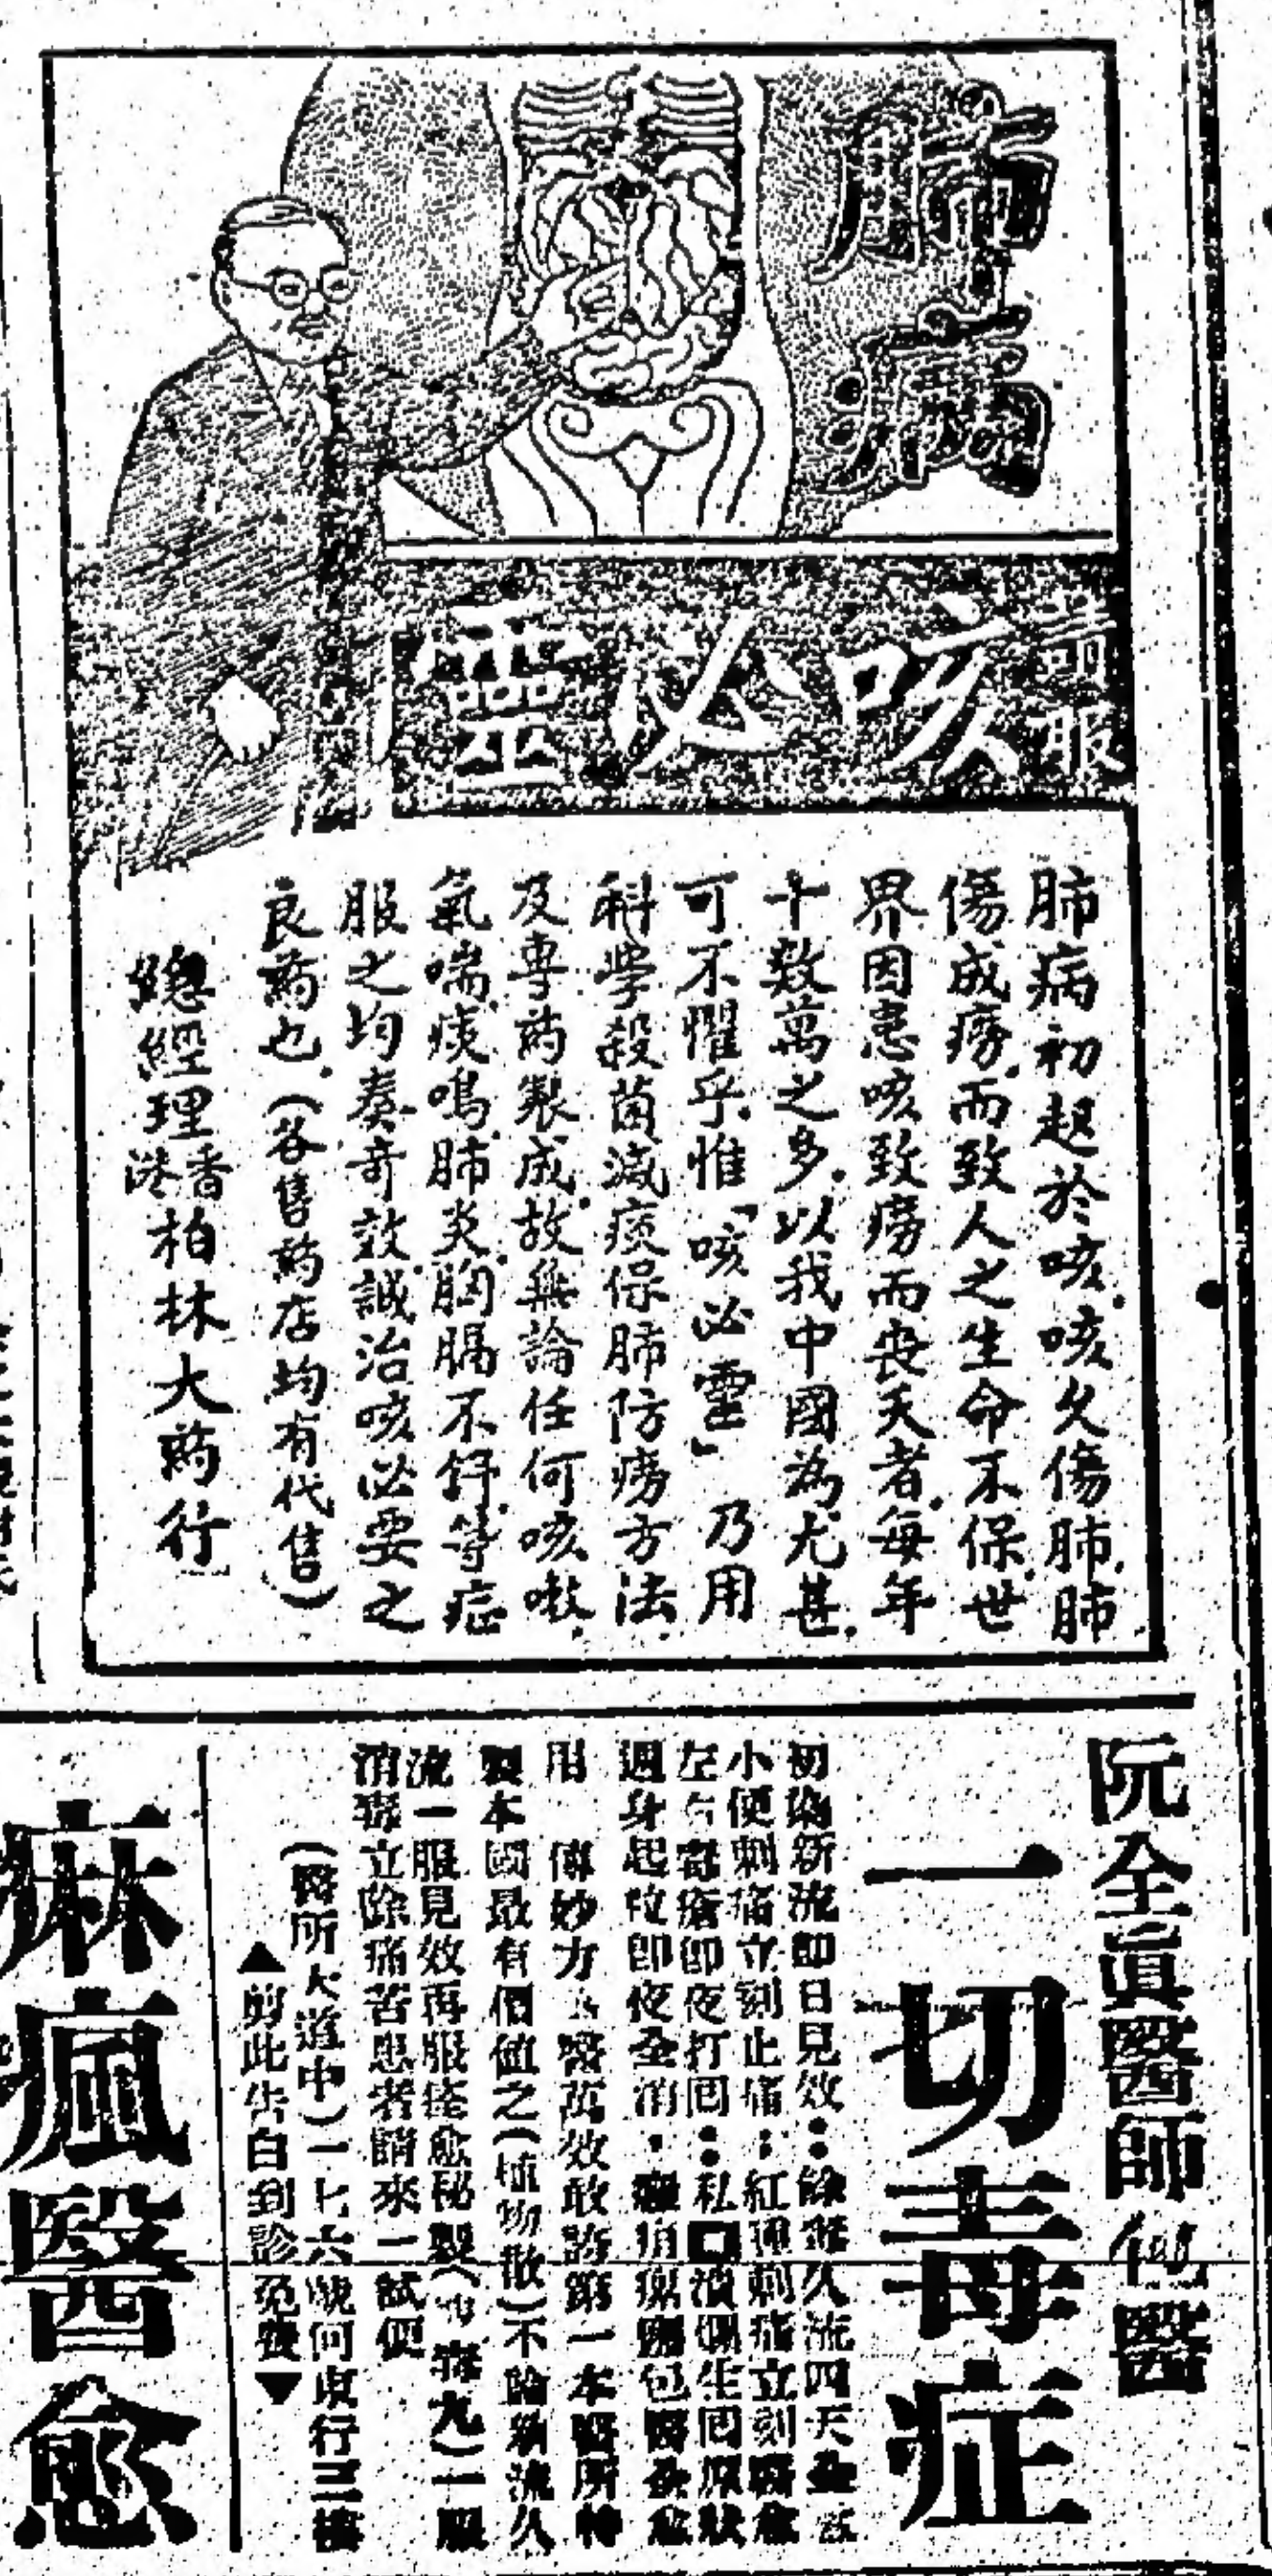 肺病
請服
咳必靈
肺病初起於咳.咳久傷肺.肺
傷成癆.而致人之生命不保.世
界因患咳致癆而喪夭者.每年
十數萬之多.以我中國為尤甚.
可不懼乎.惟「咳必靈」乃用
科學殺菌滅痰保肺防癆方法.
及專药製成.故無論任何咳嗽.
氣喘.痰鳴.肺炎.胸膈不舒.等症
服之均奏奇效.誠治咳必要之
良药也.(各售药店均有代售)
總經理香港柏林大药行
阮全真醫師 醫
一切毒症
初染新流即日見效
小便刺痛立刻止痛
左右 瘡即夜打回
週身起 即夜全消
用 妙力 萬效敢誇第一本醫所特
製本國最有價值之(植物散)不論新流久
流一服見效再服痊愈秘製 一服
消 立除痛苦患者請來一試便
(醫所大道中)一七六號何東行三樓
▲剪此告白到診免費▼
痳瘋醫愈